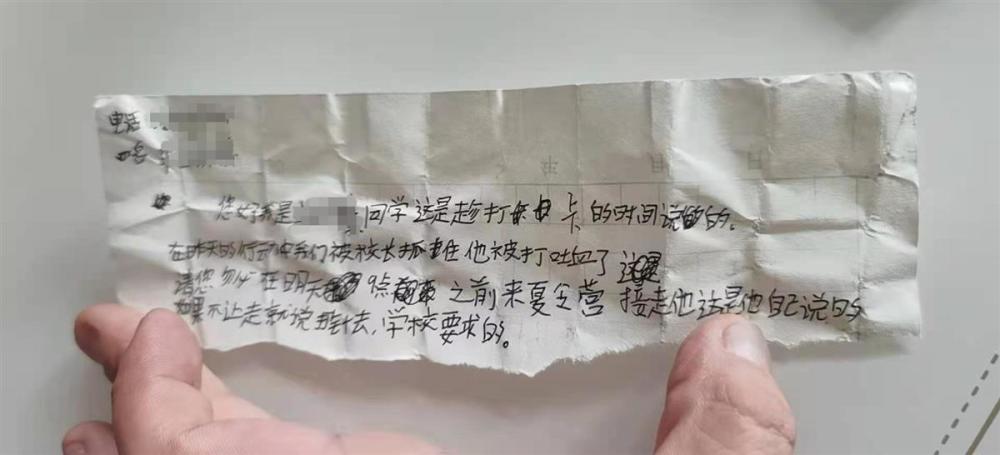 电话
您好我是 同学这是趁打卡的时间说的。
在昨天的行动中我们被校长抓住他被打吐血了
请您务必在明天9点 之前来夏令营 接走他这是他自己说的
如果不让走就说 去,学校要求的。